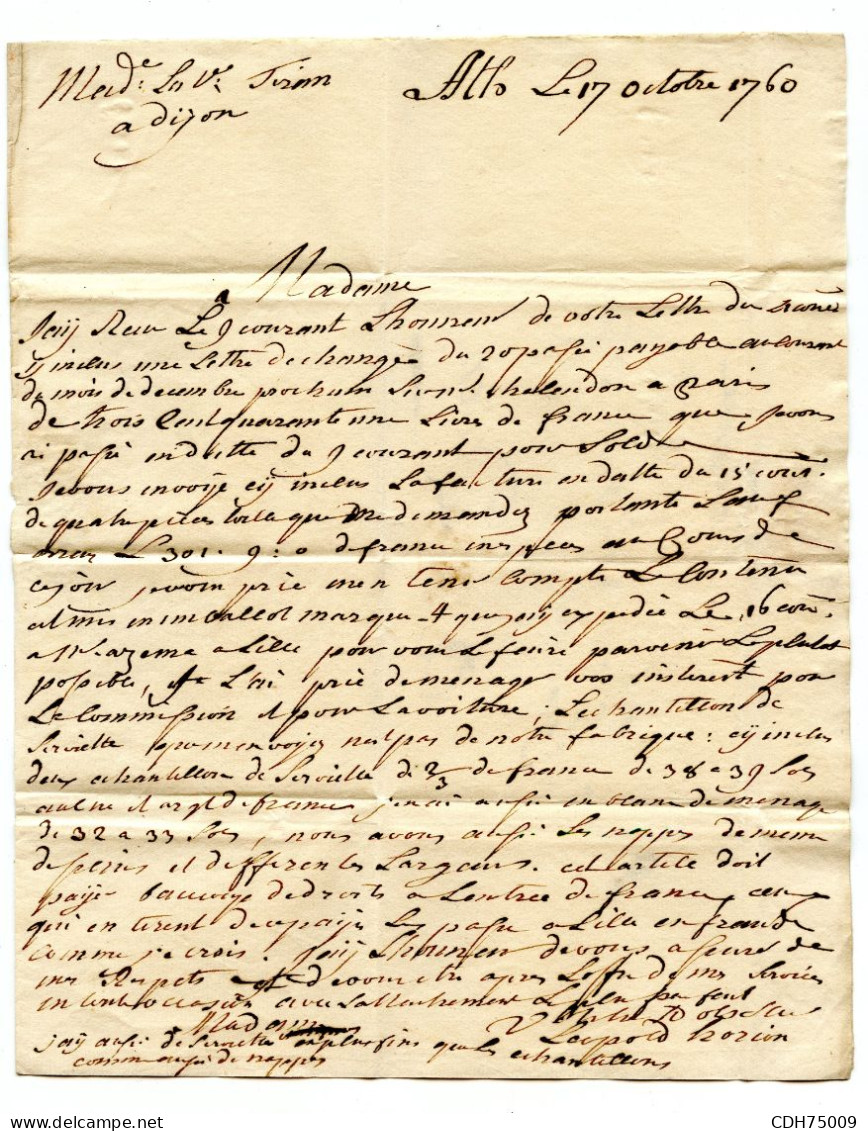 Made. La Ve. Tiran
a dijon
Ath Le 17 octobre 1760
Madame
Jaij Receu Le 9 courant Lhonneur de votre Lettre du
cy inclus une Lettre de change du 20 passé payable au courant
du mois de decembre prochain a paris
de trois Cent quarante une Livres de france que Jevous
ai passé en datte du 9 courant pour Solde
Jevous envoije cÿ inclus La facture en datte du 15 cour.
de quatre pieces toile que me demandez portante Sauf
L 301. 9: 0 de france au Cours de
ce jour je vous prie m'en tenir compte Le Contenu
at mis en un ballot marqué 4 que jaij expedié Le 16 cour.
a Mr. azema a Lille pour vous Le faire parvenir Le plutot
possible, Je L'ai prié de menager vos interest pour
La Commission et pour La voiture; L'echantillon de
Serviette que m'envoyez nest pas de notre fabrique: cÿ inclus
deux echantillons de Serviette de 2/3 de france de 38 a 39 Sols
aulne et argt de france j'en ai aussi en blanc de menage
de 32 a 33 Sols, nous avons aussi Les nappes de meme
desseins et differentes Largeurs. cet article doit
payer beaucoup de droits a Lentrée de france, ceux
qui en tirent de ce païs Les passe a Lille en fraude
comme je crois. Jaij Lhonneur de vous assurer de
mes Respects et de vous etre apres Loffre de mes Services
en toute occasion avec Lattachement Le plus parfait
Madame
Votre tres obeissant
Leopold horion
j'aij aussi de Serviettes en plus fins que Les echantillons
comme aussi de nappes
delcampe.net
CDH75009